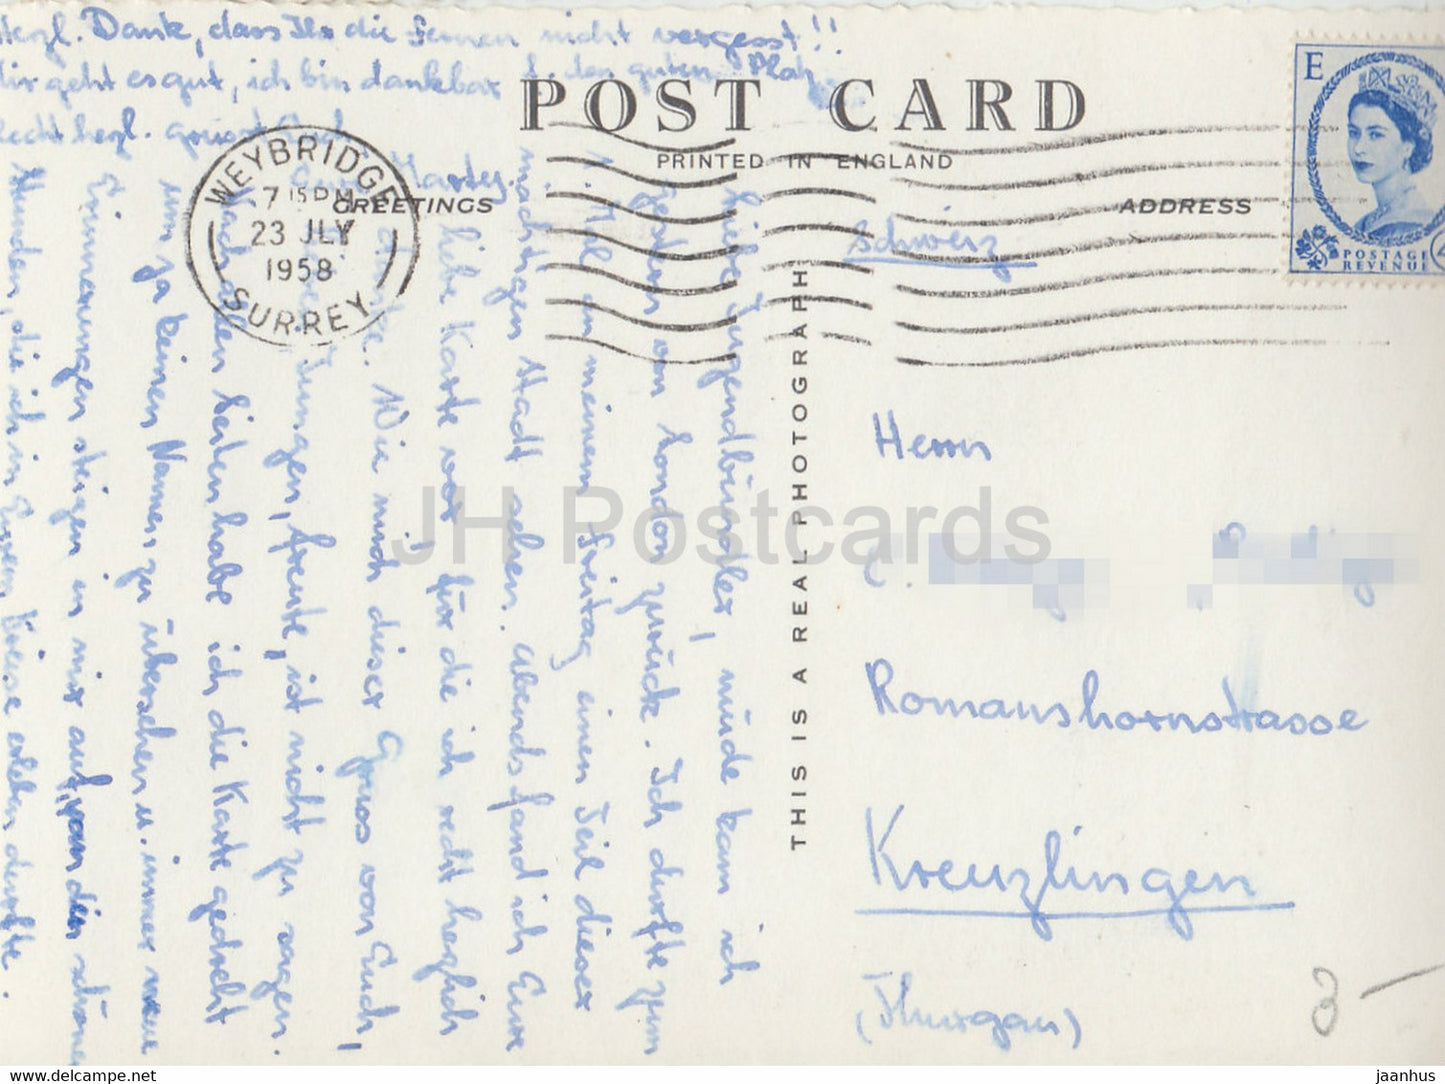 Herzl. Dank, dass Ihr die Fernen nicht vergesst!!
Mir geht es gut, ich bin dankbar f. den guten Platz.
Recht herzl. grüsst Euch
Marty.
POST CARD
PRINTED IN ENGLAND
GREETINGS
ADDRESS
WEYBRIDGE
7 15 PM
23 JLY
1958
SURREY
E
POSTAGE
REVENUE
THIS IS A REAL PHOTOGRAPH
liebe Jugendbündler, müde kam ich
gestern von London zurück. Ich durfte zum
1. Mal an meinem Freitag einen Teil dieser
mächtigen Stadt sehen. Abends fand ich Eure
liebe Karte vor, für die ich recht herzlich
danke. Wie mich dieser Gruss von Euch,
Jungen, freute, ist nicht zu sagen.
Nach allen Seiten habe ich die Karte gedreht
um ja keinen Namen zu übersehen u. immer neue
Erinnerungen steigen in mir auf, von den schönen
Stunden, die ich in Eurem Kreise erleben durfte.
Schweiz
Herrn
Romanshornstrasse
Kreuzlingen
(Thurgau)
3 –
JH Postcards
www.delcampe.net
jaanhus